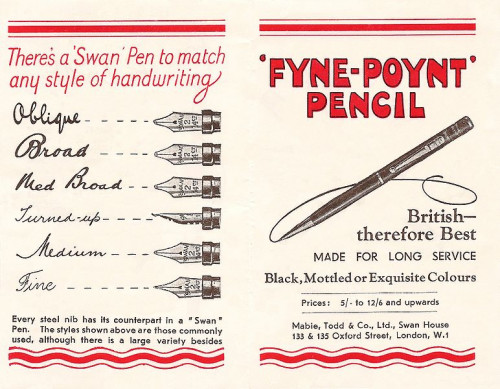 There's a 'Swan' Pen to match
any style of handwriting
Oblique
Broad
Med Broad
Turned-up
Medium
Fine
Every steel nib has its counterpart in a "Swan"
Pen. The styles shown above are those commonly
used, although there is a large variety besides
'FYNE-POYNT'
PENCIL
British—
therefore Best
MADE FOR LONG SERVICE
Black, Mottled or Exquisite Colours
Prices: 5/- to 12/6 and upwards
Mabie, Todd & Co., Ltd., Swan House
133 & 135 Oxford Street, London, W.1